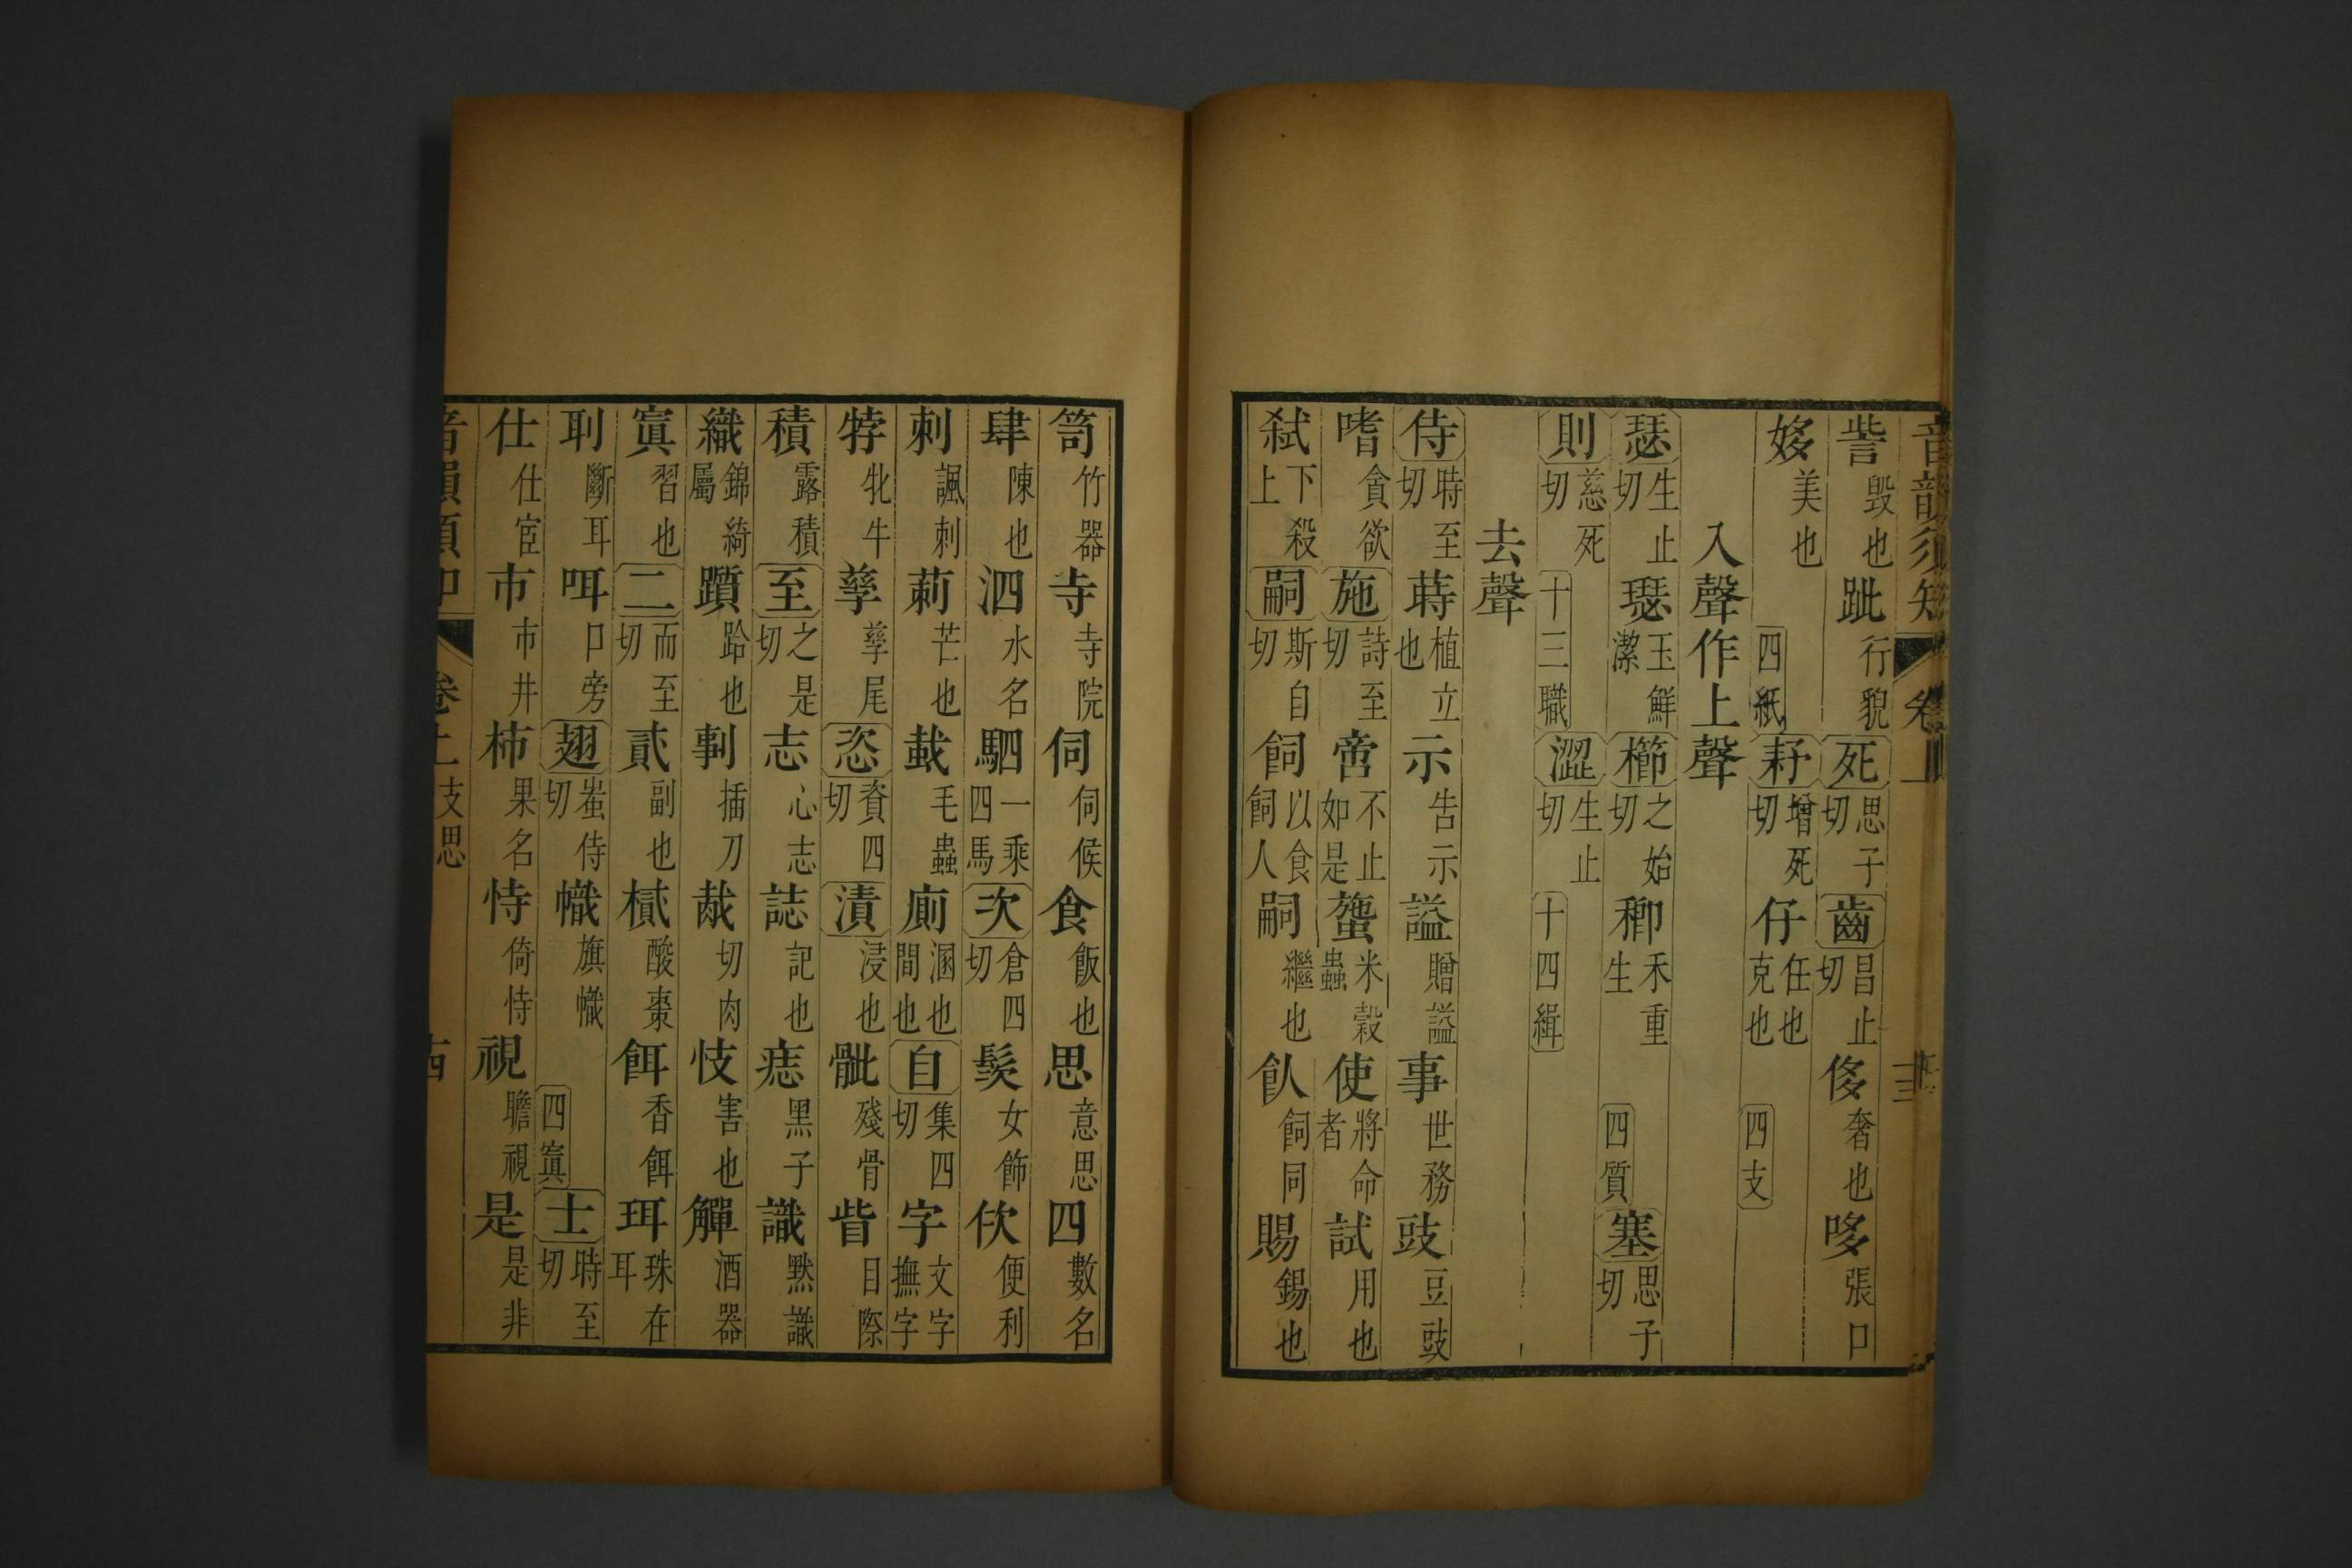 音韻須知 卷上 十三
訾毀也跐行貌死思子切齒昌止切侈奢也哆張口
姼美也四紙耔增死切仔任也克也四支
入聲作上聲
瑟生止切璱玉鮮潔櫛之始切㮝禾重生四質塞思子切
則慈死切十三職澀生止切十四緝
去聲
侍時至切蒔植立也示告示謚贈謚事世務豉豆豉
嗜貪欲施詩至切啻不止如是蟚米穀蟲使將命者試用也
弒下殺上嗣斯自切飼以食飼人嗣繼也飤飼同賜錫也
笥竹器寺寺院伺伺候食飯也思意思四數名
肆陳也泗水名駟一乘四馬次倉四切髮女飾佽便利
刺諷刺莿芒也蛓毛蟲廁溷也間也自集四切字文字撫字
牸牝牛孳孳尾恣資四切漬浸也骴殘骨眥目際
積露積至之是切志心志誌記也痣黑子識默識
織錦綺屬躓跲也剚插刀胾切肉忮害也觶酒器
寘習也二而至切貳副也樲酸棗餌香餌珥珠在耳
刵斷耳咡口旁翅蚩侍切幟旗幟四寘士時至切
仕仕宦市市井柿果名恃倚恃視瞻視是是非
音韻須知 卷上 支思 十四